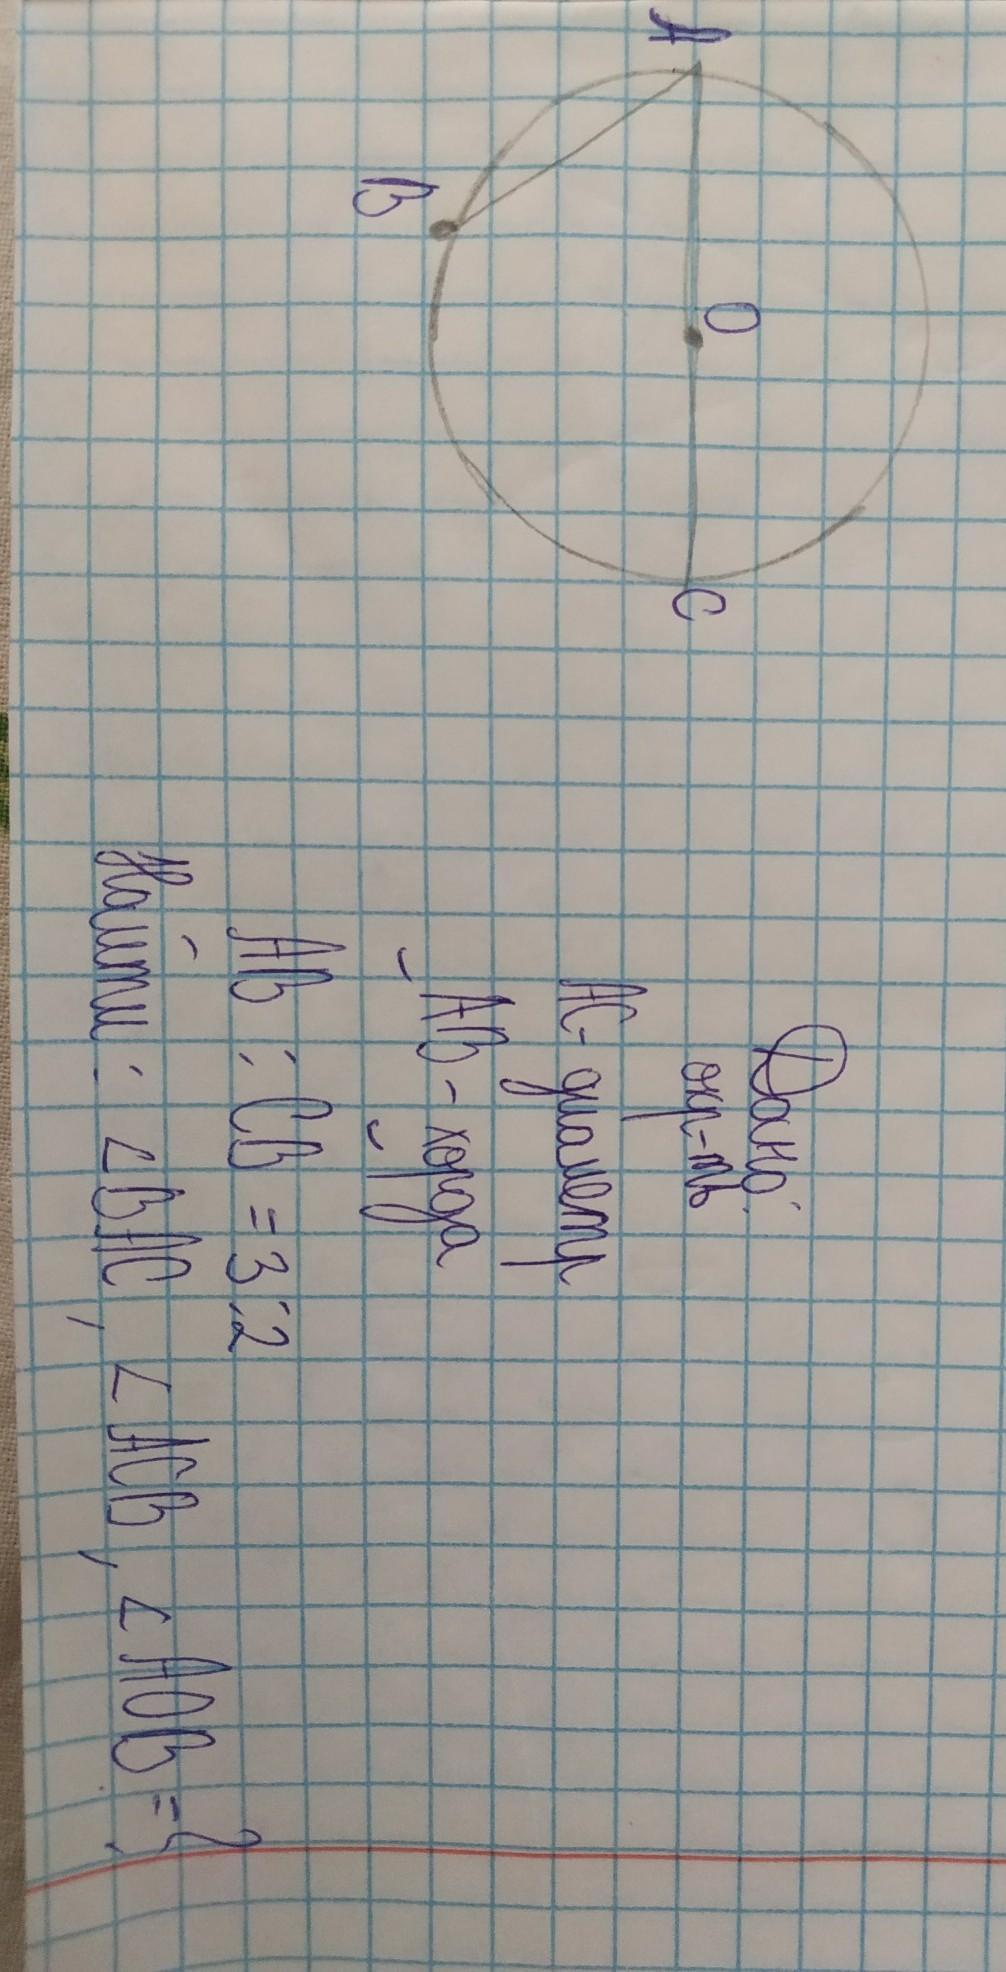 A
B
O
C
Дано:
окр-ть
AC - диаметр
AB - хорда
◡AB : ◡CB = 3:2
Найти: ∠BAC, ∠ACB, ∠AOB = ?